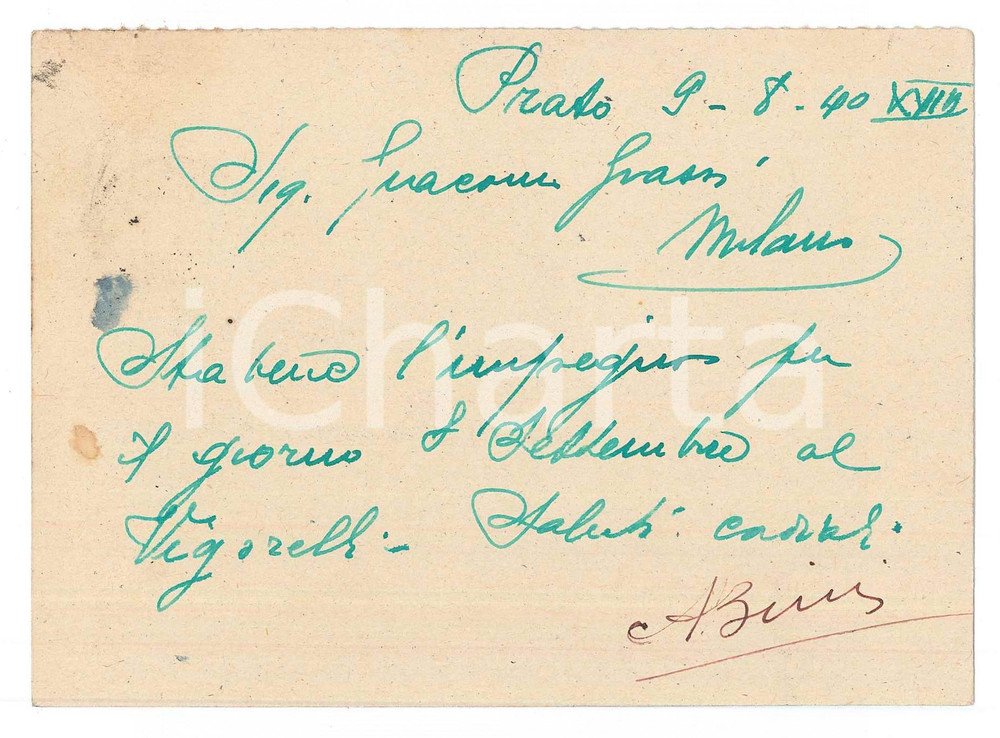 Prato 9-8-40 XVIII
Sig. Giacomo Grassi
Milano
Sta bene l'impegno per
il giorno 8 Settembre al
Vigorelli - Saluti cordiali.
A. Bini
iCharta